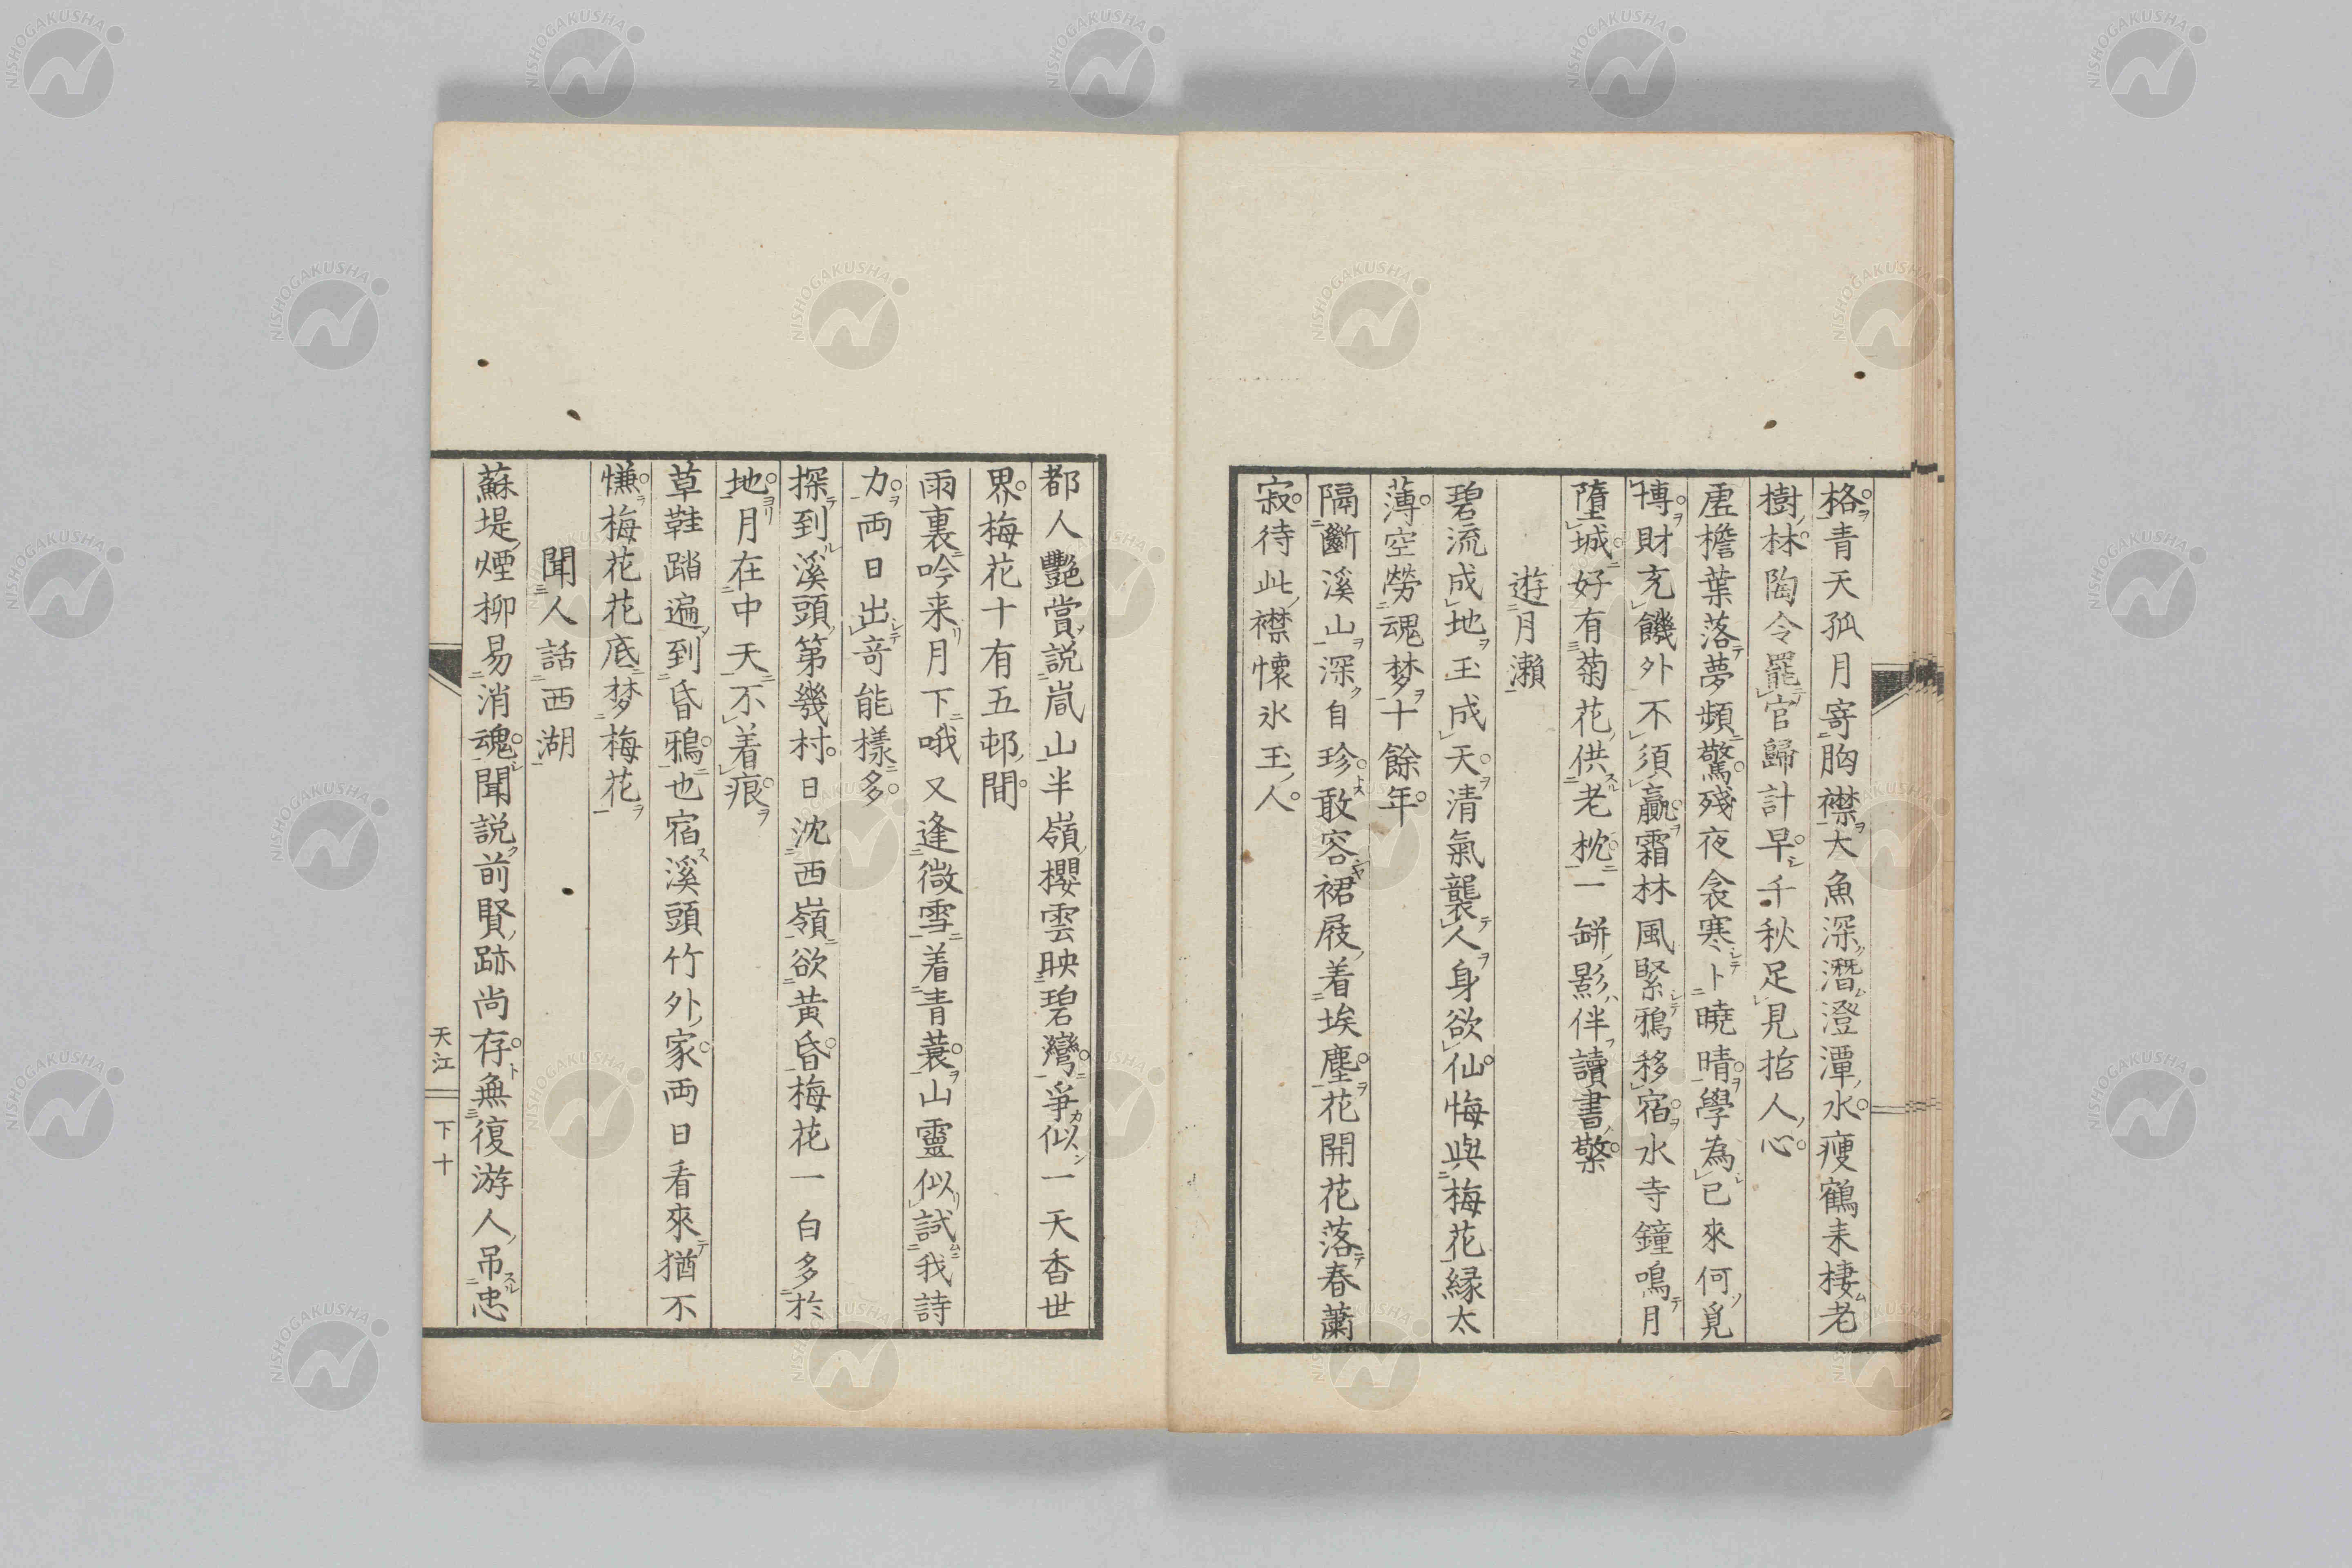 格青天孤月寄胸襟大魚深潛澄潭水瘦鶴来棲老
樹林陶令罷官歸計早千秋足見哲人心
虛檐葉落夢頻驚殘夜衾寒卜曉晴學為已來何覓
博財充饑外不須贏霜林風緊鴉移宿水寺鐘鳴月
墮城好有菊花供老枕一缾影伴讀書檠
遊月瀬
碧流成地玉成天清氣襲人身欲仙悔與梅花緣太
薄空勞魂梦十餘年
隔斷溪山深自珍敢容裙屐着埃塵花開花落春蕭
寂待此襟懷氷玉人
都人艷賞説嵐山半嶺櫻雲映碧灣爭似一天香世
界梅花十有五邨間
雨裏吟来月下哦又逢微雪着青蓑山靈似試我詩
力両日出竒能樣多
探到溪頭第幾村日沈西嶺欲黃昏梅花一白多於
地月在中天不着痕
草鞋踏遍到昏鴉也宿溪頭竹外家両日看來猶不
慊梅花花底梦梅花
聞人話西湖
蘇堤煙柳易消魂聞説前賢跡尚存無復游人吊忠
天江
下十